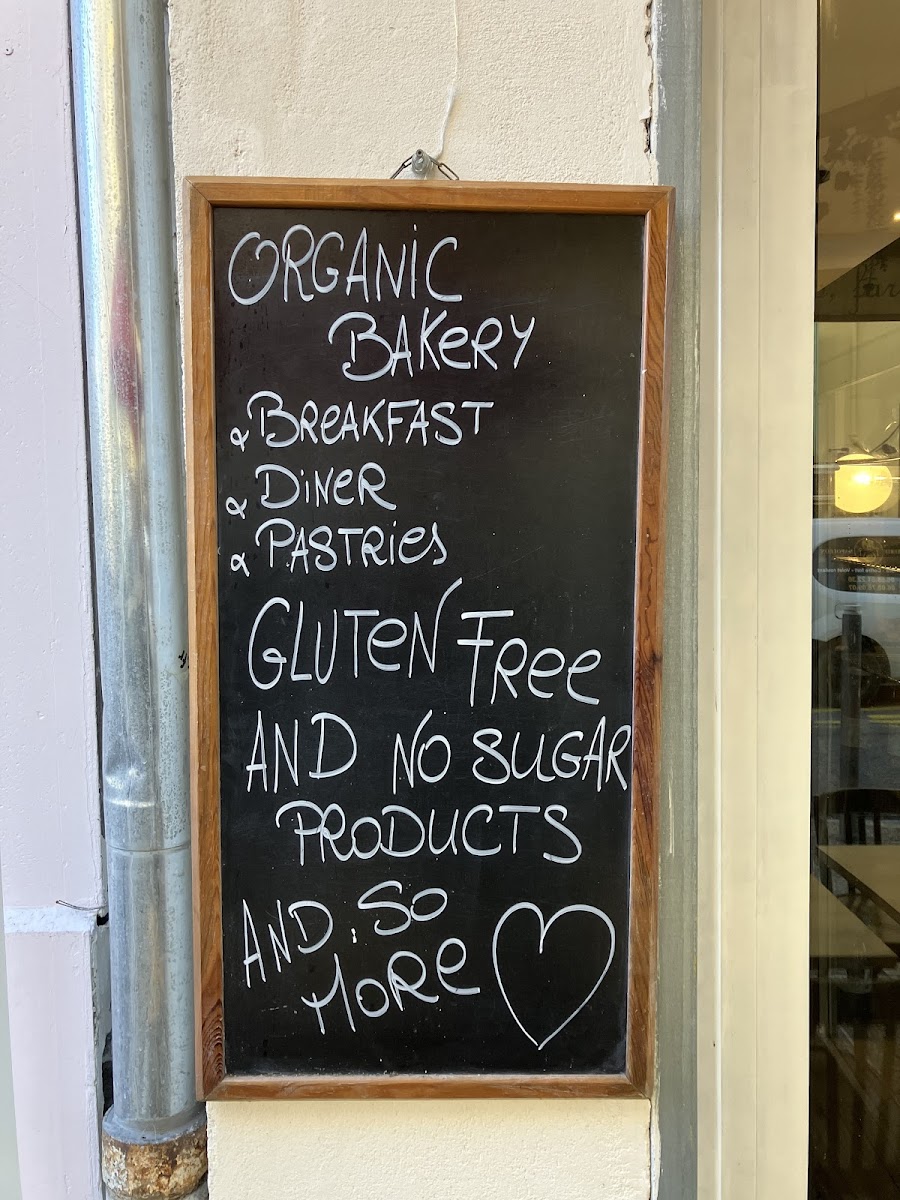 ORGANIC
BAKERY
& BREAKFAST
& DINER
& PASTRIES
GLUTEN FREE
AND NO SUGAR
PRODUCTS
AND SO
MORE